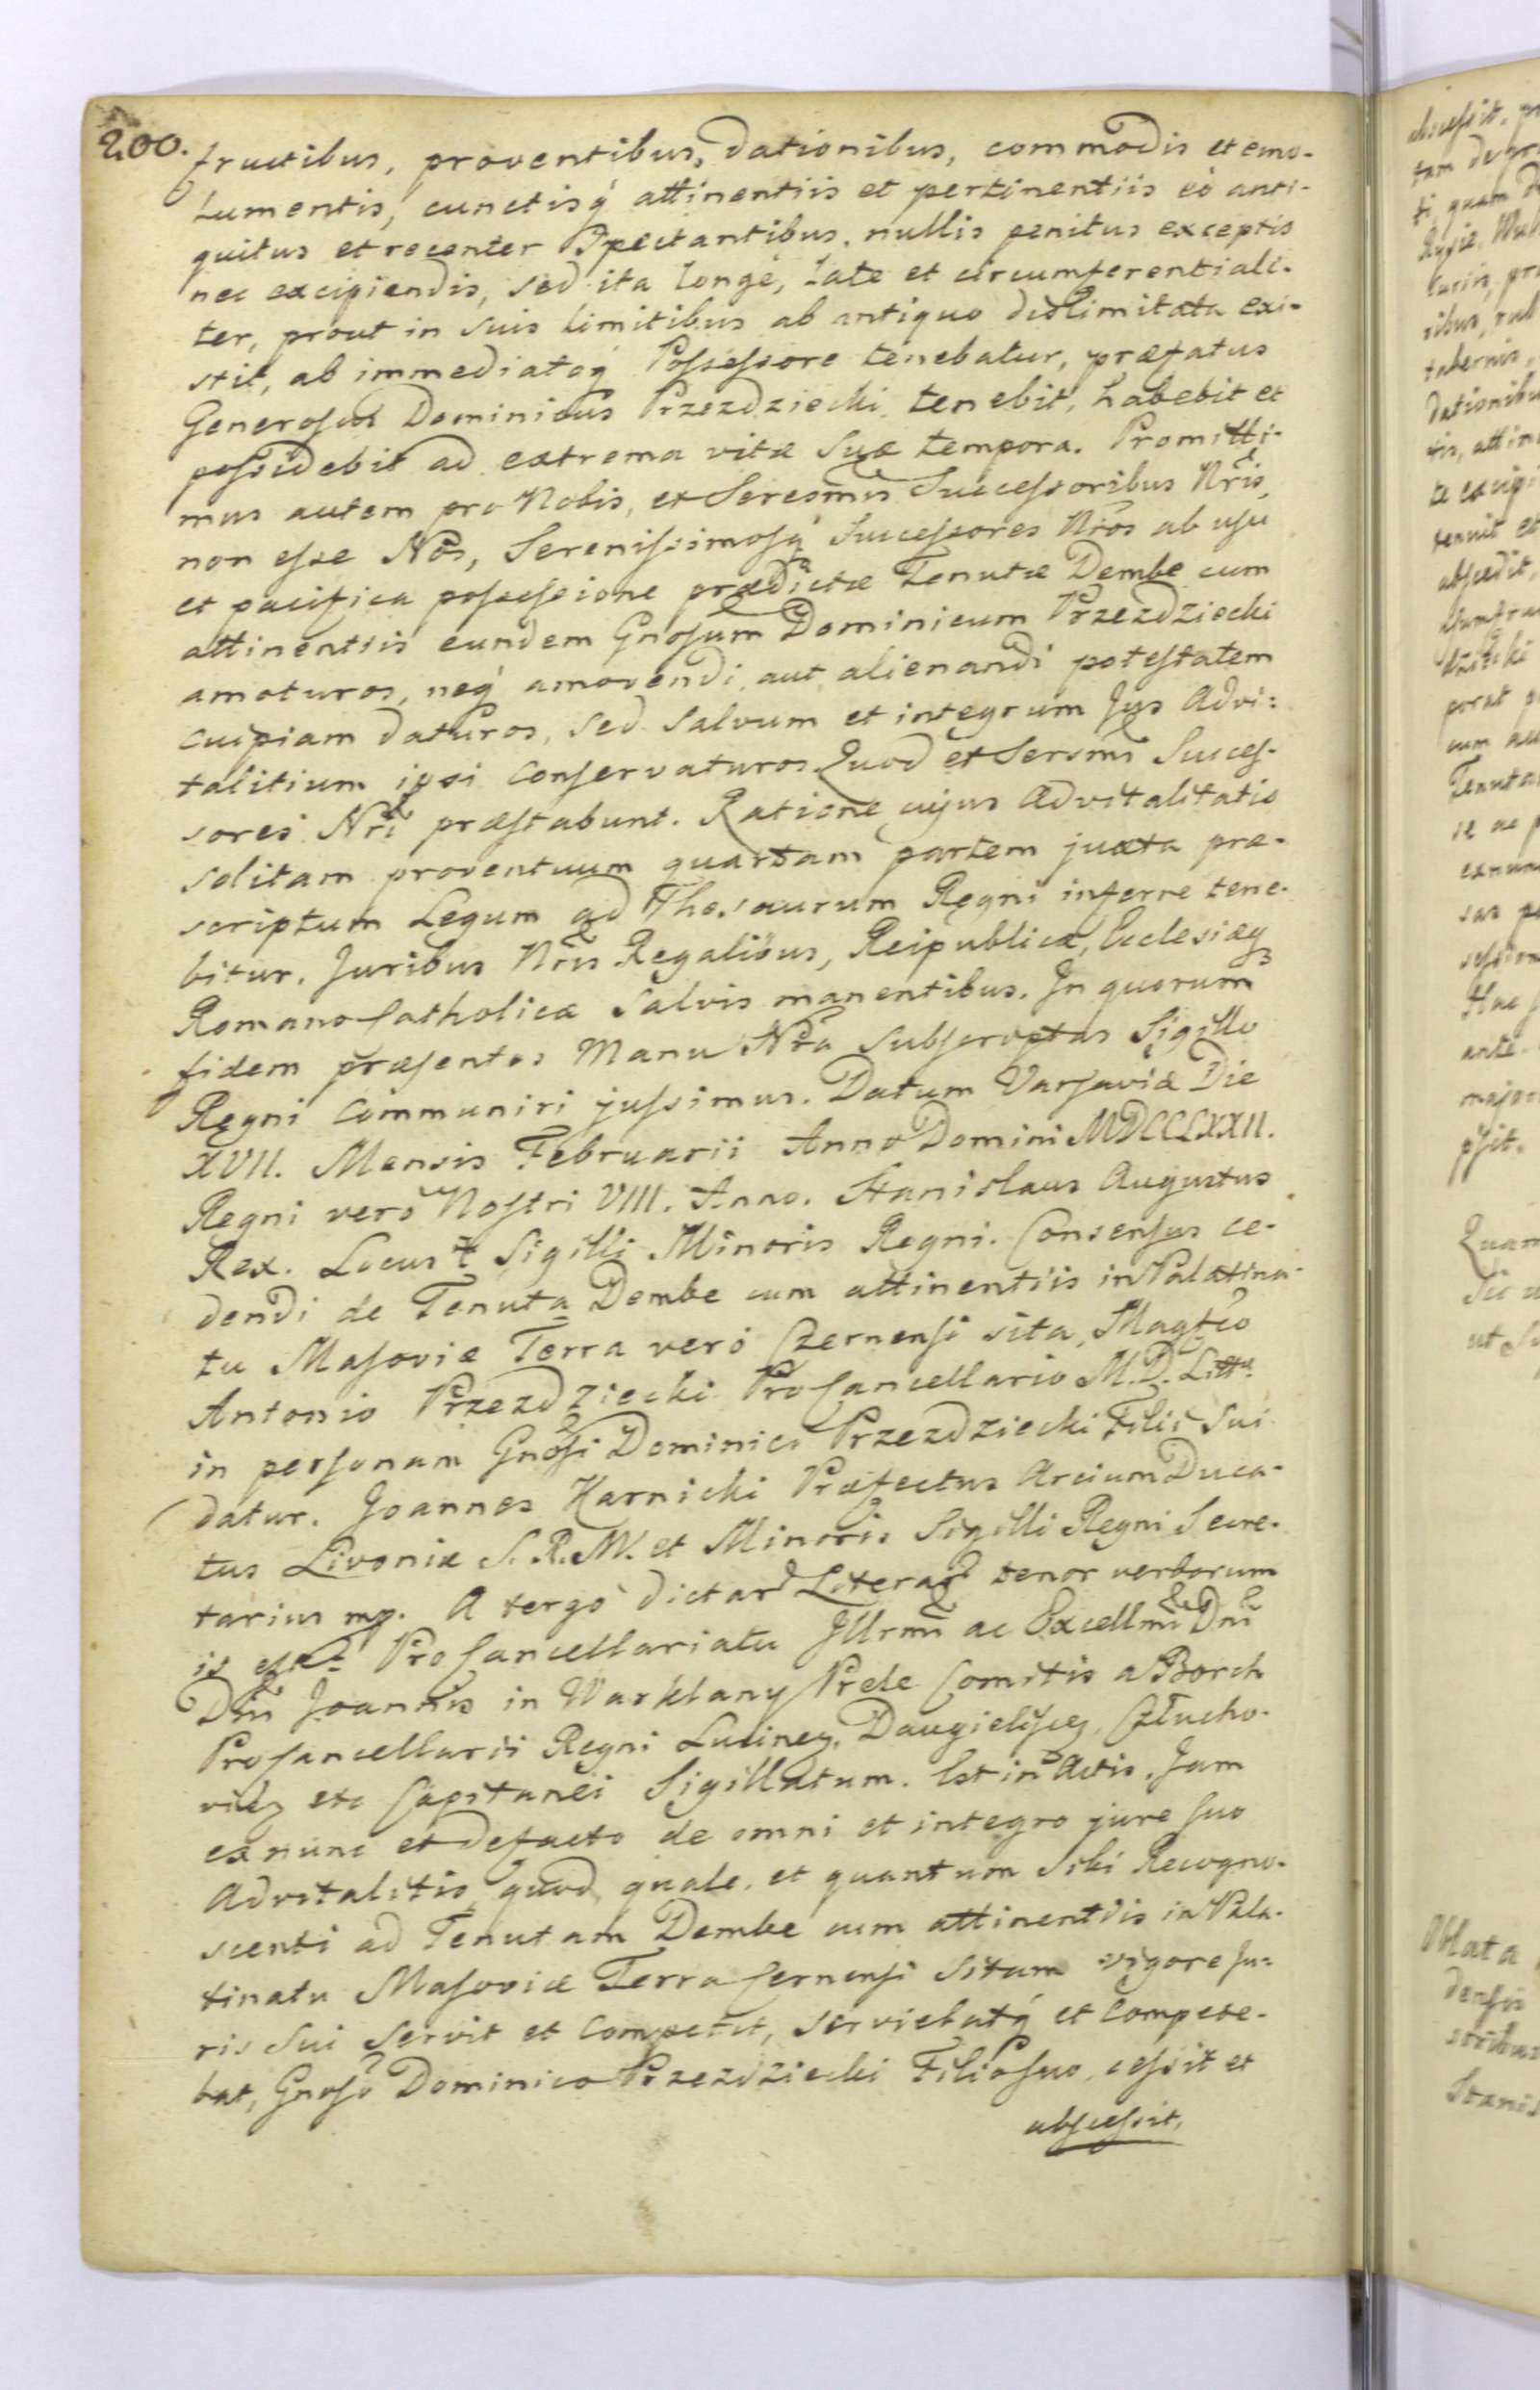 200.
fructibus, proventibus, dationibus, commodis et emo-
lumentis, cunctisq́ attinentiis et pertinentiis eò anti-
quitus et recenter Spectantibus, nullis penitus exceptis
nec excipiendis, sed ita longè, late et circumferentiali-
ter, prout in suis limitibus ab antiquo dislimitata exi-
stit, ab immediatoq́ Possessore tenebatur, præfatus
Generosus Dominicus Przezdziecki tenebit, habebit et
possidebit ad extrema vitæ suæ tempora. Promitti-
mus autem pro Nobis, et Seresmis Successoribus Nr̃is,
non esse Nos, Serenissimosq́ Successores Nr̃os ab usu
et pacifica possessione prædictæ Tenutæ Dembe cum
attinentiis eundem Gnosum Dominicum Przezdziecki
amoturos, neq́ amovendi aut alienandi potestatem
cuipiam daturos, sed Salvum et integrum Jus Advi-
talitium ipsi conservaturos. Quod et Sersmi Succes-
sores Nr̃i præstabunt. Ratione cujus Advitalitatis
solitam proventuum quartam partem juxta præ-
scriptum Legum ad Thesaurum Regni inferre tene-
bitur. Juribus Nr̃is Regalibus, Reipublicæ, Ecclesiæq
Romano Catholicæ Salvis manentibus. In quorum
fidem præsentes Manu Nr̃a subscriptas Sigillo
Regni Communiri jussimus. Datum Varsaviæ Die
XVII. Mensis Februarii Anno Domini MDCCLXXII.
Regni verò Nostri VIII. Anno. Stanislaus Augustus
Rex. Locus Sigilli Minoris Regni. Consensus ce-
dendi de Tenuta Dembe cum attinentiis in Palatina-
tu Masoviæ Terra verò Czernensi sita, Magfco
Antonio Przezdziecki Pro Cancellario M. D. Litt.
in personam Gnosi Dominici Przezdziecki Filii Sui
datur. Joannes Karnicki Præfectus Arcium Duca-
tus Livoniæ S. R. M. et Minoris Sigilli Regni Secre-
tarius mp. A tergo dictar Literar tenor verborum
is est Pro Cancellariatu Jllrm̃i ac Excellm̃i Dn̄i
Dn̄i Joannis in Warklany Prele Comitis a Borch
Pro Cancellarii Regni Lucineñ, Daugielisceñ, Człucho-
vieñ etc Capitanei Sigillatum. Est in Actis. Jam
ex nunc et defacto de omni et integro jure suo
Advitalitio, quod, quale, et quantum Sibi Recogno-
scenti ad Tenutam Dembe cum attinentiis in Pala-
tinatu Masoviæ Terra Cernensi Sitam vigore Ju-
ris Sui Servit et Competit, serviebatq́ et compete-
bat, Gnoso Dominico Przezdziecki Filio suo, cessit et
abscessit,
Oblata